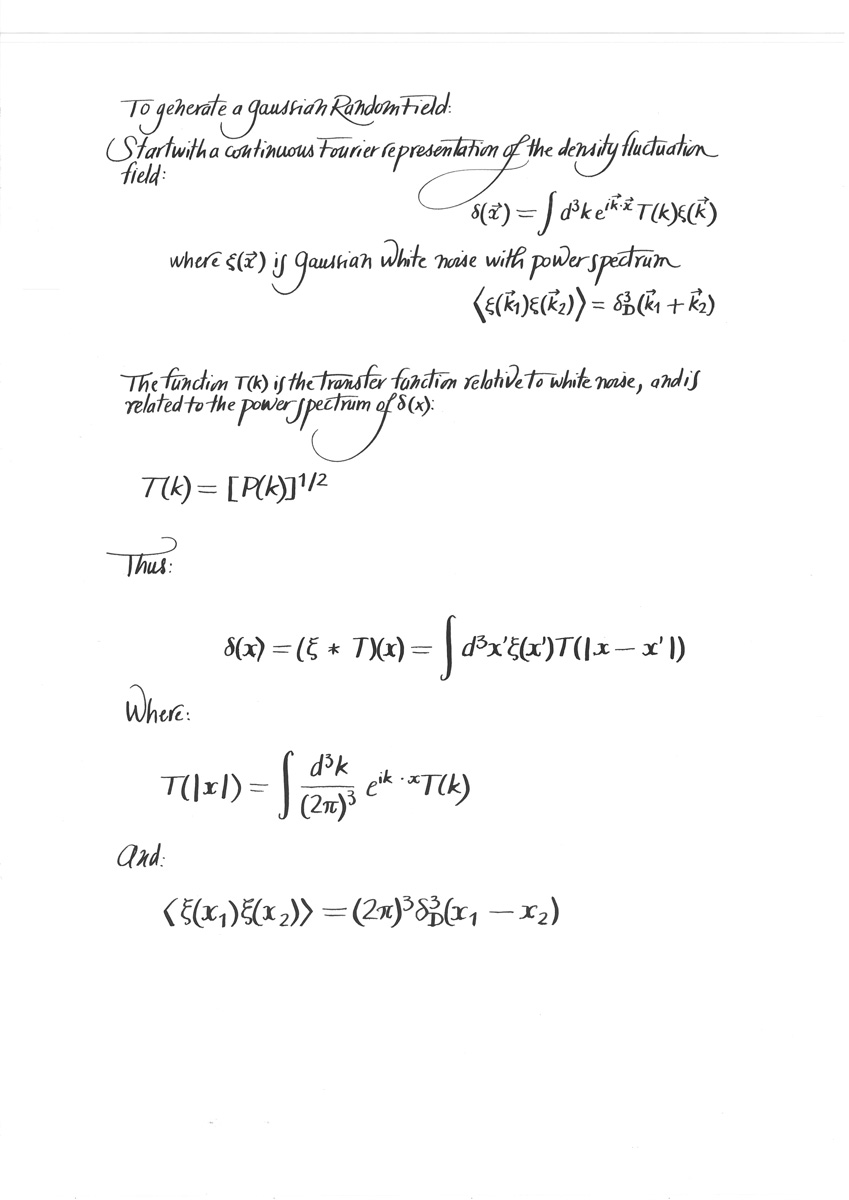 To generate a gaussian Random Field:
Start with a continuous Fourier representation of the density fluctuation
field:
δ(x⃗) = ∫ d³k e^{ik⃗·x⃗} T(k)ξ(k⃗)
where ξ(x⃗) is gaussian white noise with power spectrum
⟨ξ(k⃗₁)ξ(k⃗₂)⟩ = δ³_D(k⃗₁ + k⃗₂)
The function T(k) is the transfer function relative to white noise, and is
related to the power spectrum of δ(x):
T(k) = [P(k)]^{1/2}
Thus:
δ(x) = (ξ * T)(x) = ∫ d³x'ξ(x')T(|x − x'|)
Where:
T(|x|) = ∫ d³k/(2π)³ e^{ik·x}T(k)
And:
⟨ξ(x₁)ξ(x₂)⟩ = (2π)³δ³_D(x₁ − x₂)